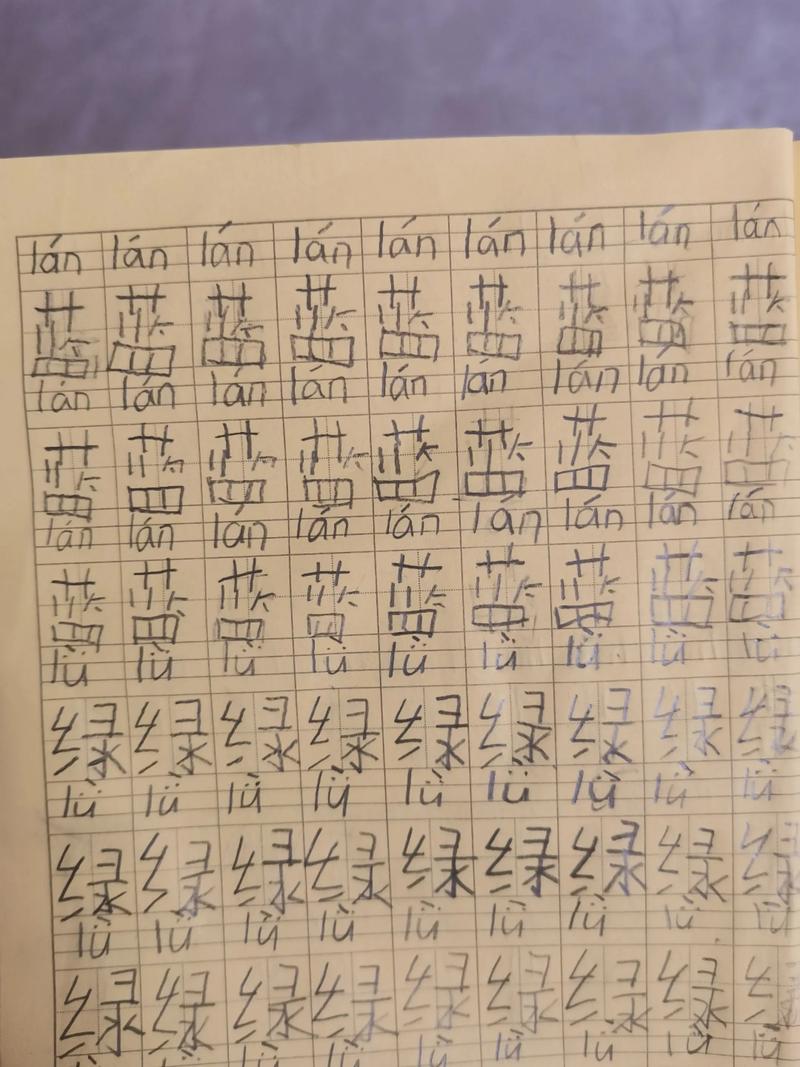 lán lán lán lán lán lán lán lán lán
蓝 蓝 蓝 蓝 蓝 蓝 蓝 蓝 蓝
lán lán lán lán lán lán lán lán lán
蓝 蓝 蓝 蓝 蓝 蓝 蓝 蓝 蓝
lán lán lán lán lán lán lán lán lán
蓝 蓝 蓝 蓝 蓝 蓝 蓝 蓝 蓝
lǜ lǜ lǜ lǜ lǜ lǜ lǜ lǜ lǜ
绿 绿 绿 绿 绿 绿 绿 绿 绿
lǜ lǜ lǜ lǜ lǜ lǜ lǜ lǜ lǜ
绿 绿 绿 绿 绿 绿 绿 绿 绿
lǜ lǜ lǜ lǜ lǜ lǜ lǜ lǜ lǜ
绿 绿 绿 绿 绿 绿 绿 绿 绿